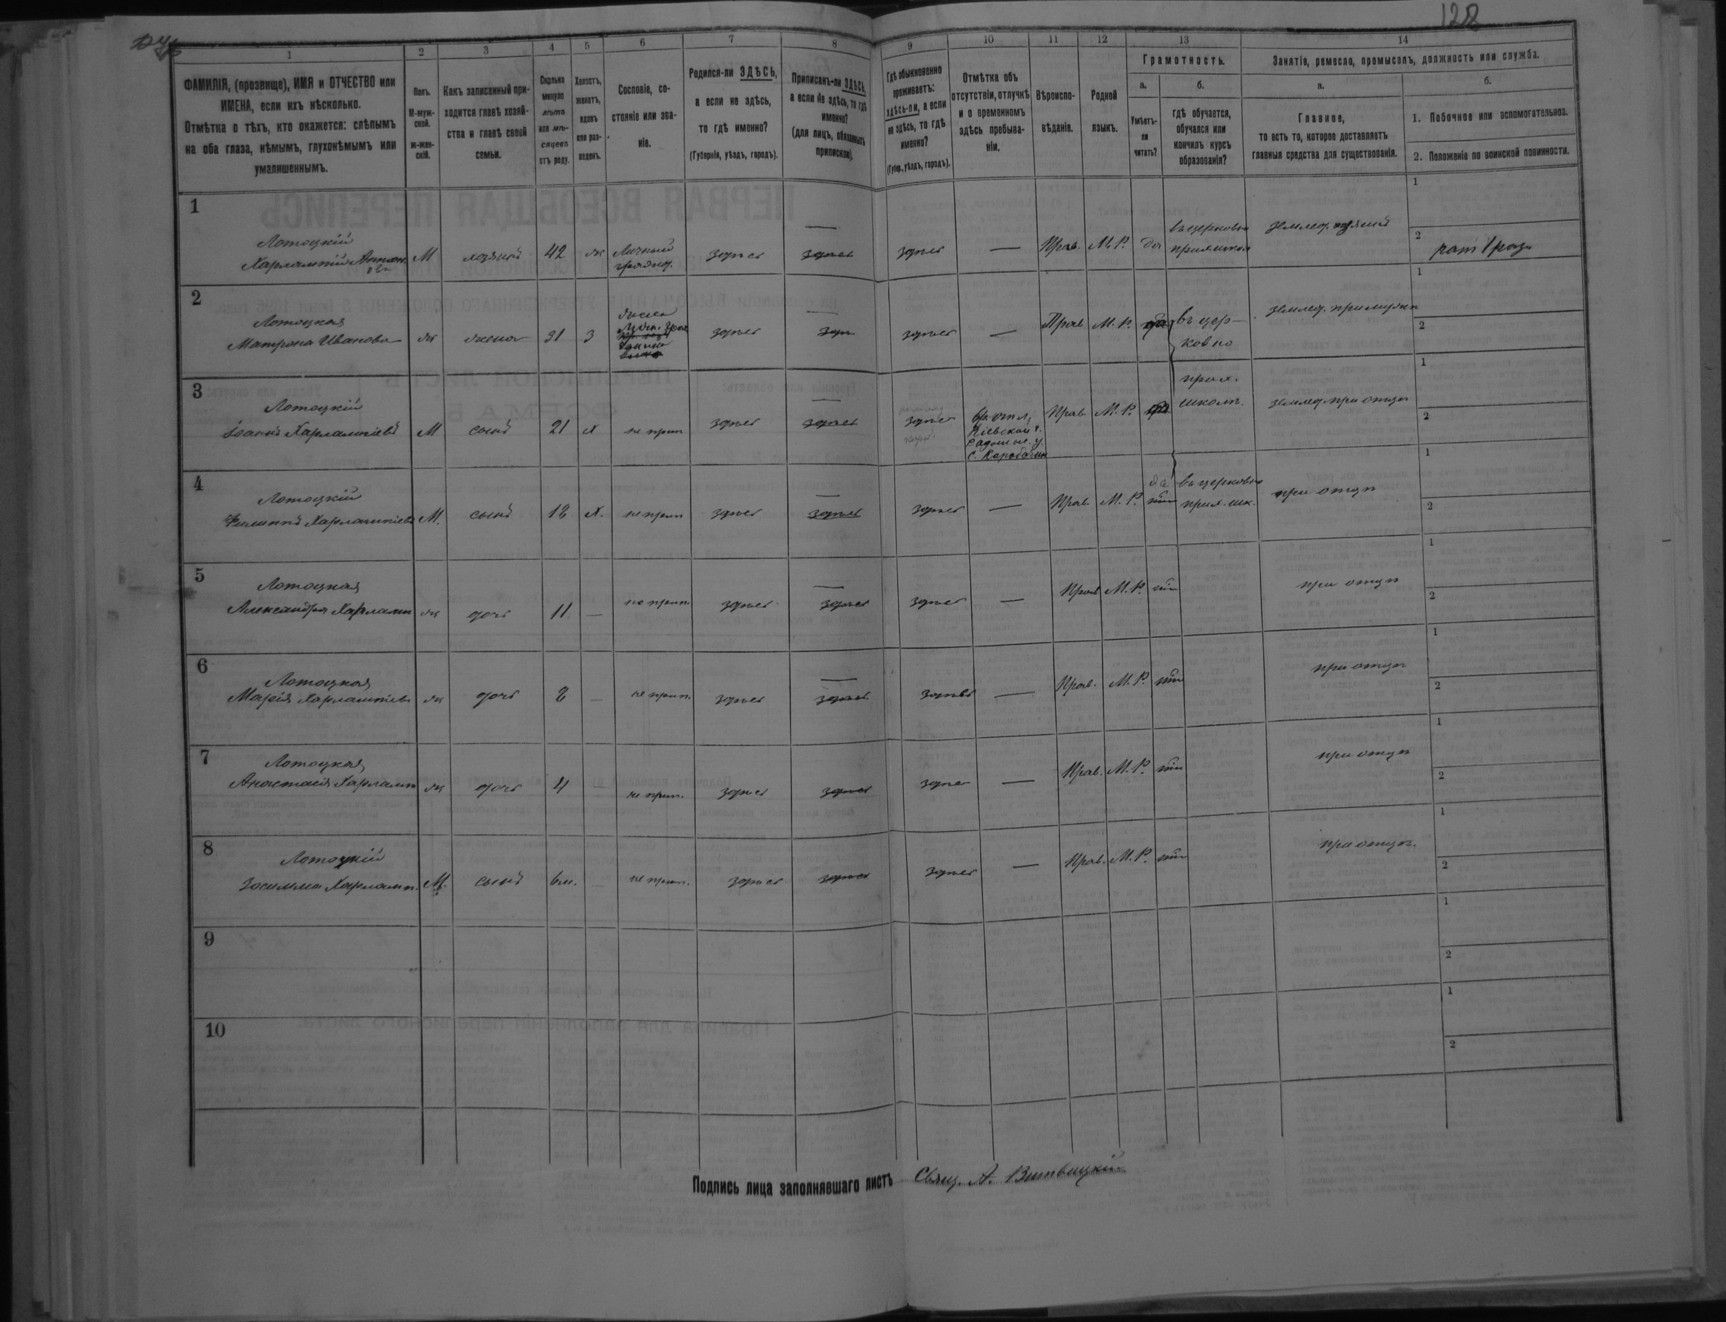 128
1 2 3 4 5 6 7 8 9 10 11 12 13 14
ФАМИЛІЯ, (прозвище), ИМЯ и ОТЧЕСТВО или
ИМЕНА, если ихъ нѣсколько.
Отмѣтка о тѣхъ, кто окажется: слѣпымъ
на оба глаза, нѣмымъ, глухонѣмымъ или
умалишеннымъ.
Полъ.
М-муж-
ской.
Ж-жен-
скій.
Какъ записанный при-
ходится главѣ хозяй-
ства и главѣ своей
семьи.
Сколько
минуло
лѣтъ
или мѣ-
сяцевъ
отъ роду.
Холостъ,
женатъ,
вдовъ
или раз-
веденъ.
Сословіе, со-
стояніе или зва-
ніе.
Родился-ли ЗДѢСЬ,
а если не здѣсь,
то гдѣ именно?
(Губернія, уѣздъ, городъ).
Приписанъ-ли ЗДѢСЬ,
а если не здѣсь, то гдѣ
именно?
(для лицъ, обязанныхъ
припиской).
Гдѣ обыкновенно
проживаетъ:
здѣсь-ли, а если
не здѣсь, то гдѣ
именно?
(Губер., уѣздъ, городъ).
Отмѣтка объ
отсутствіи, отлучкѣ
и о временномъ
здѣсь пребыва-
ніи.
Вѣроиспо-
вѣданіе.
Родной
языкъ.
Грамотность.
а.
Умѣетъ-
ли
читать?
б.
гдѣ обучается,
обучался или
кончилъ курсъ
образованія?
Занятіе, ремесло, промыселъ, должность или служба.
а.
Главное,
то есть то, которое доставляетъ
главныя средства для существованія.
б.
1. Побочное или вспомогательное.
2. Положеніе по воинской повинности.
1
Лотоцкій
Харлампій М 42 Личный здѣсь здѣсь здѣсь — Прав. М.Р. да
2
Лотоцкая
Матрона Иванова ж жена 31 З здѣсь здѣсь — Прав. М.Р. въ цер-
ковно
3
Лотоцкій
Іоаннъ Харлампіевъ М сынъ 21 х не прип здѣсь здѣсь здѣсь Прав. М.Р. школѣ. землед. при отцѣ
Кіевской г.
4
Лотоцкій
Филиппъ Харлампіевъ М. сынъ 18 х. не прип здѣсь здѣсь здѣсь — Прав. М.Р. да въ церковно при отцѣ
прих. шк.
5
Лотоцкая
Александра Харламп ж дочь 11 — не прип. здѣсь здѣсь здѣсь — Прав. М.Р. нѣт при отцѣ
6
Лотоцкая
Марія Харлампіев ж дочь 8 — не прип. здѣсь здѣсь здѣсь — Прав. М.Р. нѣт при отцѣ
7
Лотоцкая
Анастасія Харламп ж дочь 4 не прип. здѣсь здѣсь здѣсь — Прав. М.Р. нѣт при отцѣ
8
Лотоцкій
Зосимма Харламп. М. сынъ 6 м. — не прип. здѣсь здѣсь здѣсь — Прав. М.Р. нѣт при отцѣ.
9
10
Подпись лица заполнявшаго листъ Свящ. А. Витвицкій